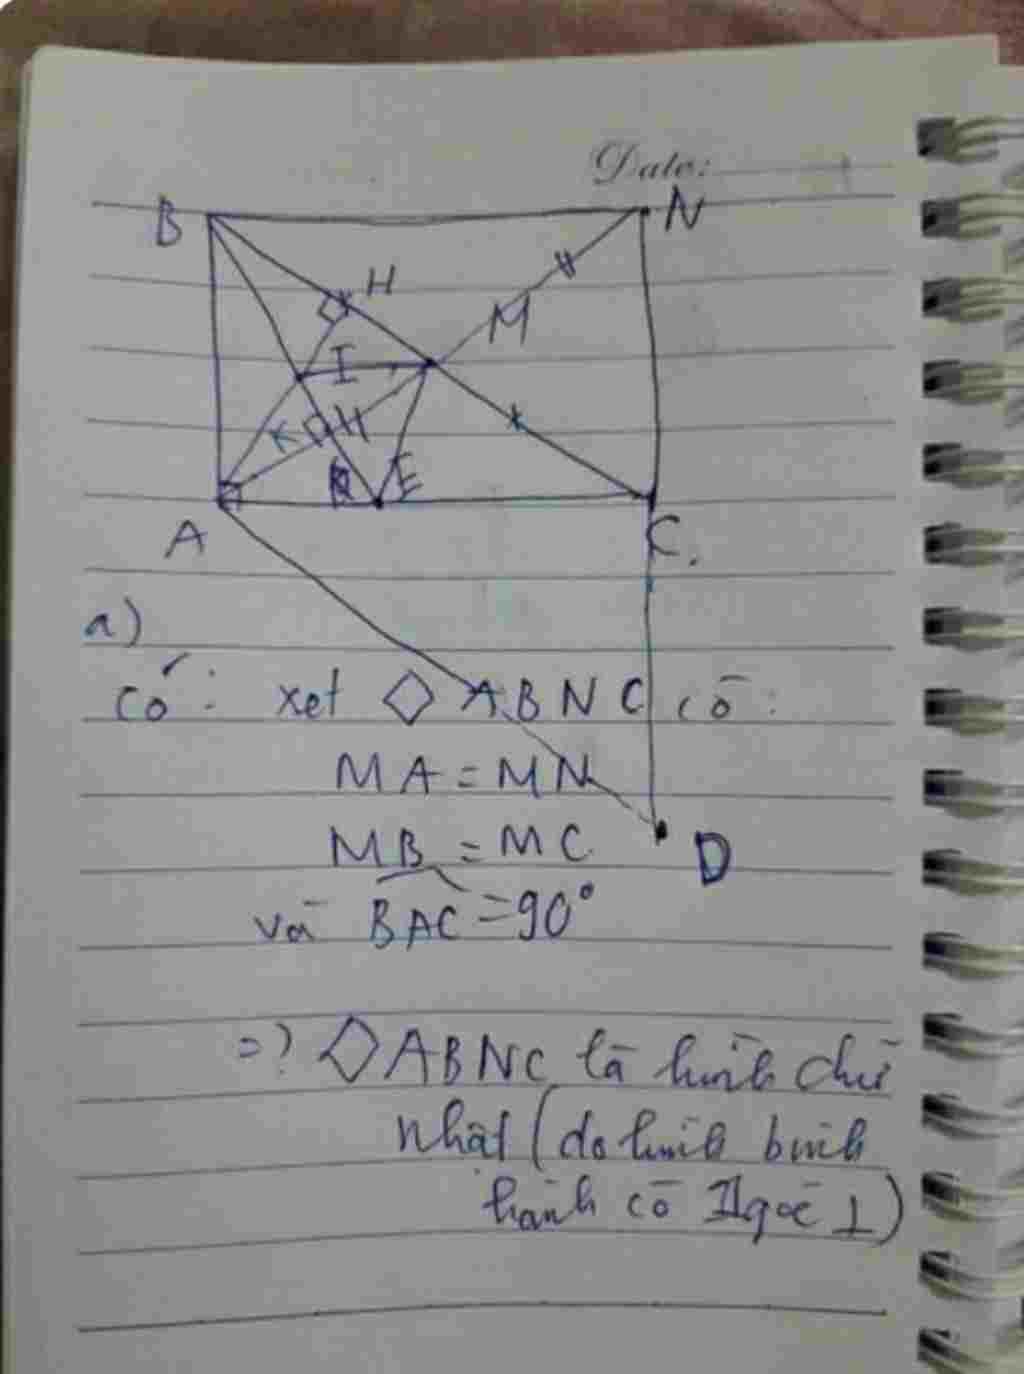 Date:
B N
H
M
I
K H
E
A C.
a)
Có: xét ◇ ABNC có:
MA = MN
MB = MC
D
và BAC = 90°
=> ◇ ABNC là hình chữ
nhật (do hình bình
hành có 1 góc ⊥)